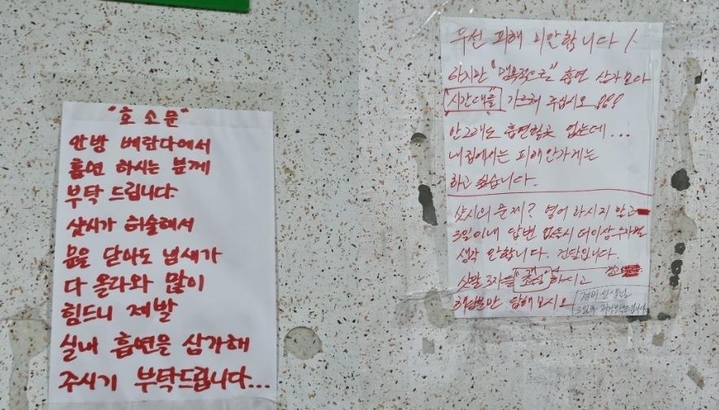 "호소문"
안방 베란다에서
흡연 하시는 분께
부탁 드립니다
샷시가 허술해서
문을 닫아도 냄새가
다 올라와 많이
힘드니 제발
실내 흡연을 삼가해
주시기 부탁드립니다...
우선 피해 미안합니다!
하지만 흡연 삼가보다
시간대를 가르쳐 주십시오
안그래도 흡연할곳 없는데...
내집에서는 피해 안가게는
하고 싶습니다.
샷시의 문제? 말아 하시지 말고
3일이내 답변 없을시 더이상
생각 안합니다.
3자를 하시고
답해 보시오